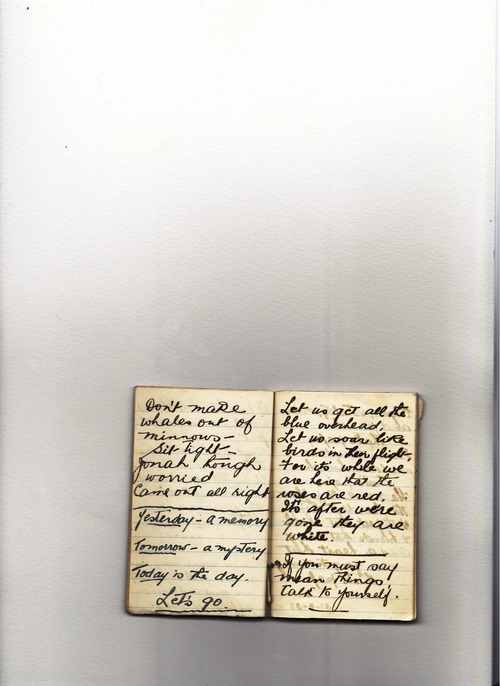 Don't make
whales out of
minnows—
Sit tight—
Jonah though
worried
Came out all right
Yesterday - a memory
Tomorrow - a mystery
Today is the day.
Let's go.
Let us get all the
blue overhead,
Let us soar like
birds in their flight,
For its while we
are here that the
roses are red.
It's after we're
gone they are
white.
If you must say
mean things
talk to yourself.